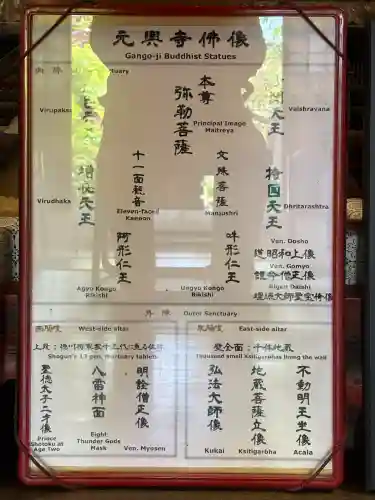 元興寺佛像
Gango-ji Buddhist Statues
内陣
Vaisravana
本尊
弥勒菩薩
Principal Image
Maitreya
Virupaksa
持国天王
Dhritarashtra
文殊菩薩
Manjushri
十一面観音
Eleven-faced
Kannon
増長天王
Virudhaka
吽形仁王
Ungyo Kongo
Rikishi
阿形仁王
Agyo Kongo
Rikishi
Ven. Dosho
道昭和上像
Ven. Gomyo
護命僧正像
Rigen Daishi
理源大師聖宝像
外陣 Outer Sanctuary
西脇壇 West-side altar
Shogun's 13 gen. mortuary tablets
明詮僧正像
Ven. Myosen
八雷神面
Eight
Thunder Gods
Mask
聖徳太子二才像
Prince
Shotoku at
Age Two
東脇壇 East-side altar
壁全面：千体地蔵
Thousand small Ksitigarbhas lining the wall
不動明王坐像
Acala
地蔵菩薩立像
Ksitigarbha
弘法大師像
Kukai